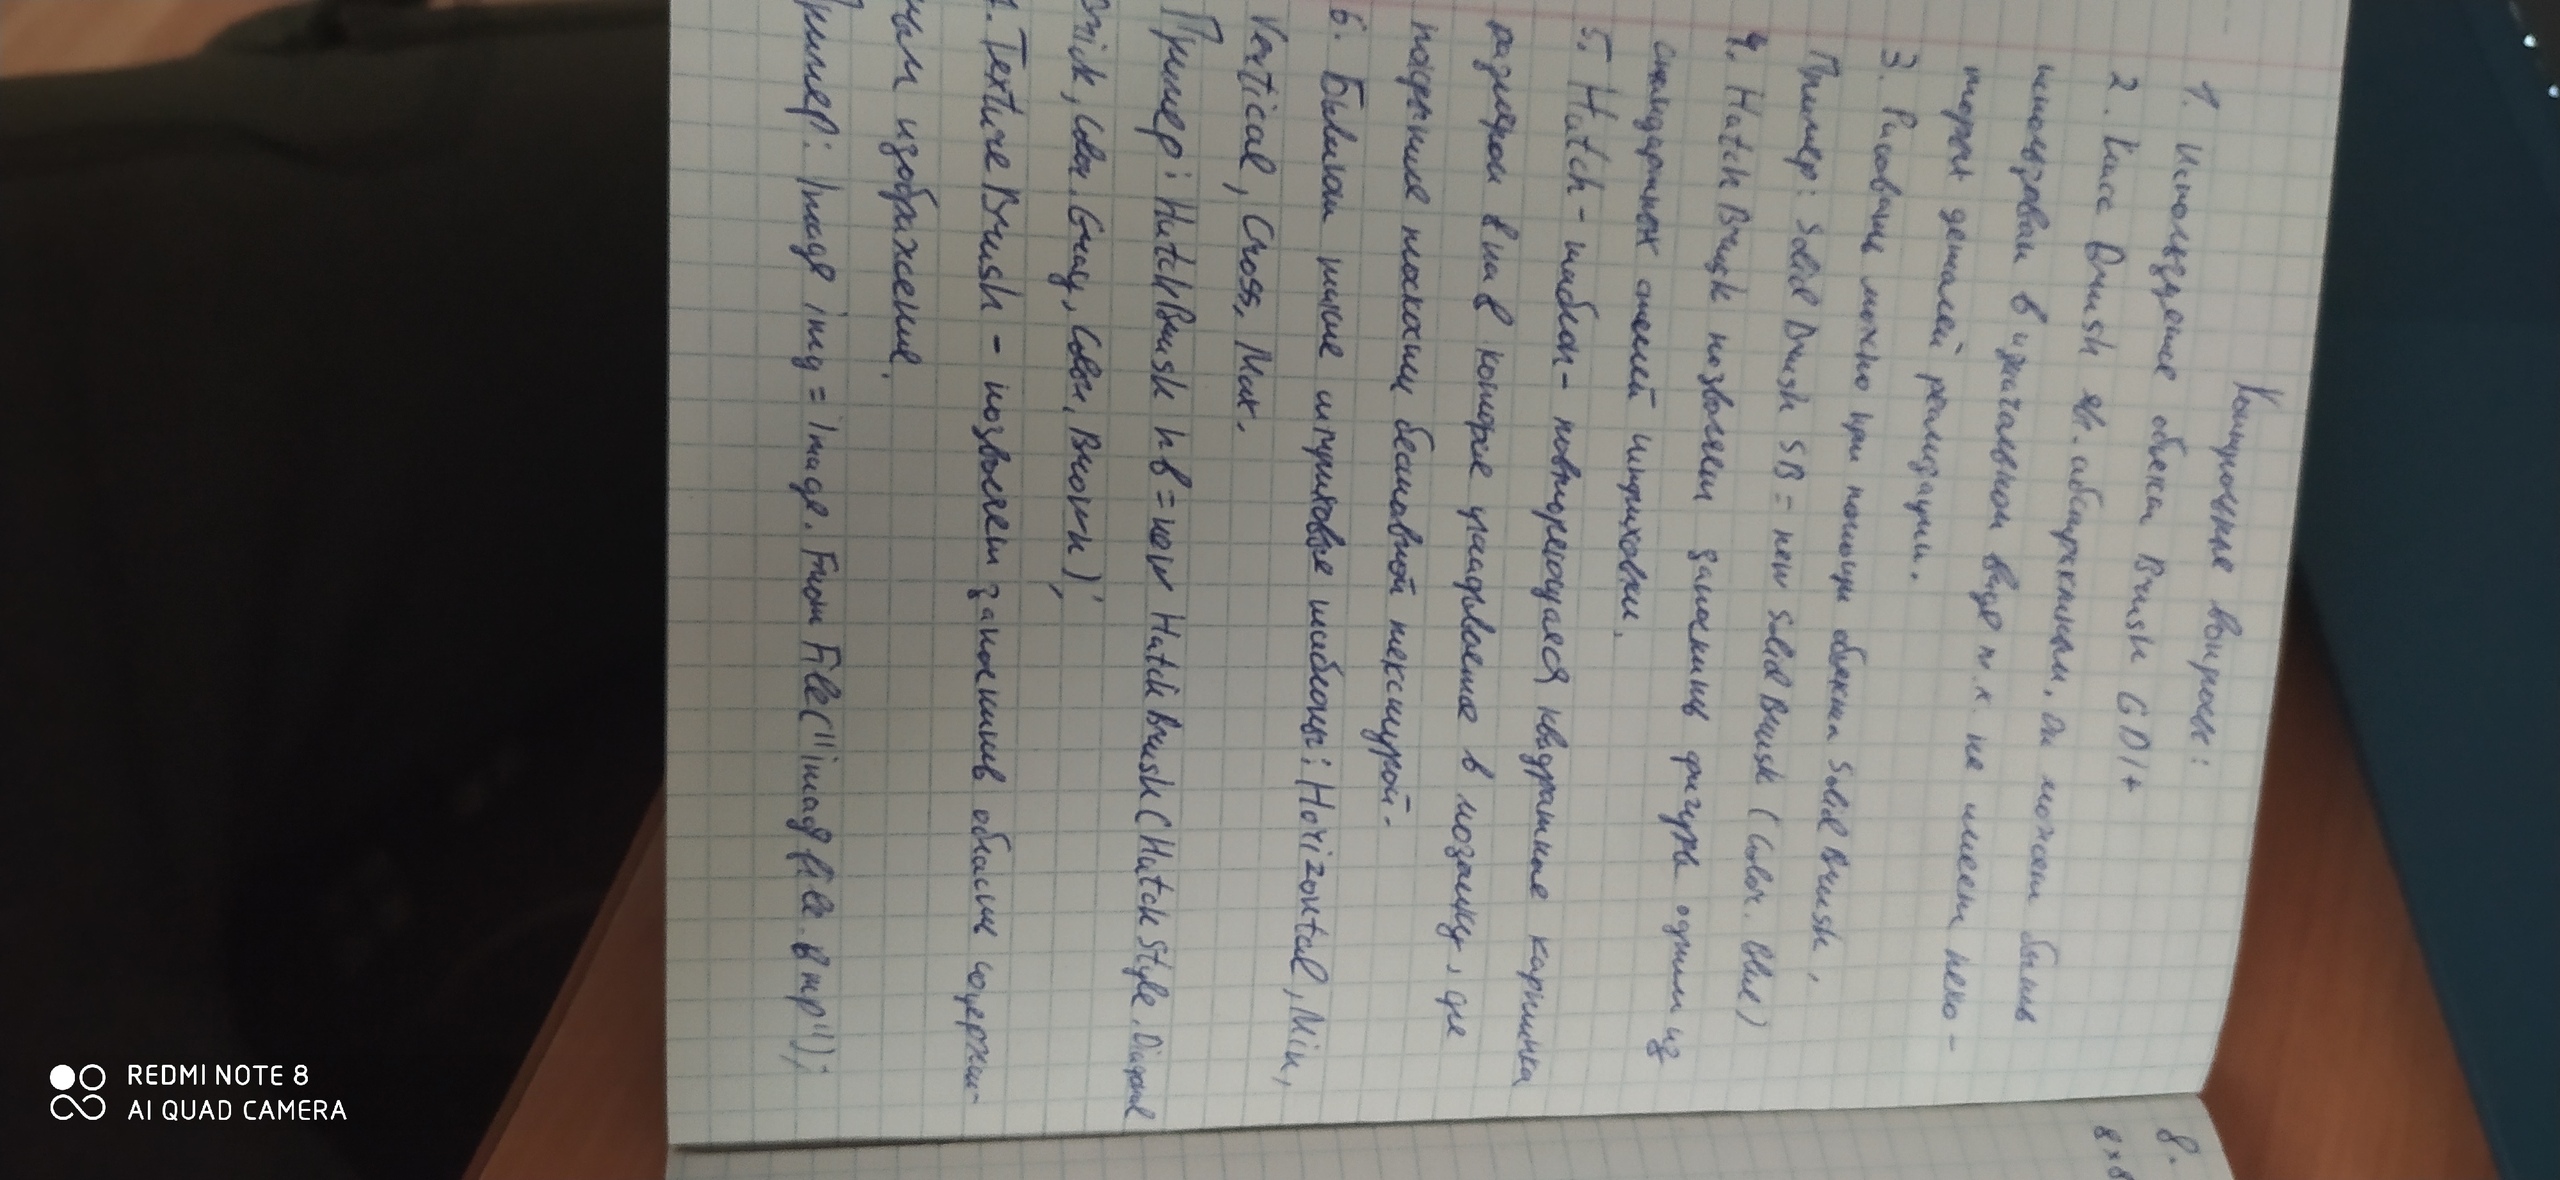 Контрольные вопросы:
1. Использование объекта Brush GDI+
2. Класс Brush яв. абстрактным, он может быть
использован в изначальном виде т.к не имеет неко-
торых деталей реализации.
3. Рисовать можно при помощи объекта Solid Brush,
Пример: Solid Brush SB = new Solid Brush (Color. Blue)
4. Hatch Brush позволяет заполнить фигуры одним из
стандартных стилей штриховки.
5. Hatch-шаблон - повторяющаяся квадратная картинка
размером 8 на 8 которые в мозаику, для
покрытия плоскости бесшовной текстурой.
6. Бывают такие штриховые шаблоны: Horizontal, Min,
Vertical, Cross, Max.
Пример: Hatch Brush hb = new Hatch Brush (Hatch Style. Diagonal
Brick, Color. Gray, Color, Brown);
7. Texture Brush - позволяет заполнить область содержи-
мым изображения.
Пример: Image img = Image. From File ("imagfile. bmp");
8.
8×8